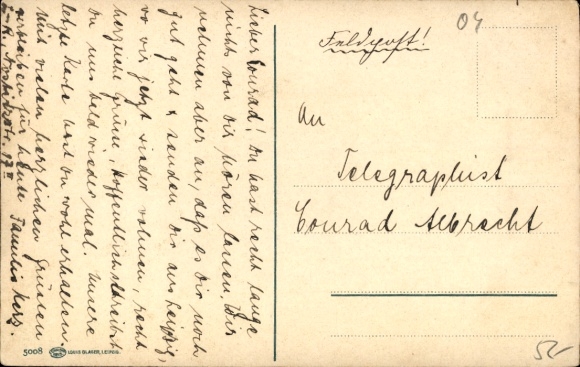 Lieber Conrad! Du hast recht lange
nichts von Dir hören lassen. Wir
nehmen aber an, daß es Dir noch
gut geht & senden Dir aus Leipzig,
wo wir jetzt wieder wohnen, recht
herzliche Grüsse, hoffentlich schreibst
Du uns bald wieder mal. Unsere
letzte Karte hast Du wohl erhalten.
Mit vielen herzlichen Grüssen
verbleiben für heute Familie
Feldpost!
04
An
Telegraphist
Conrad Albrecht
5008 LOUIS GLASER, LEIPZIG.